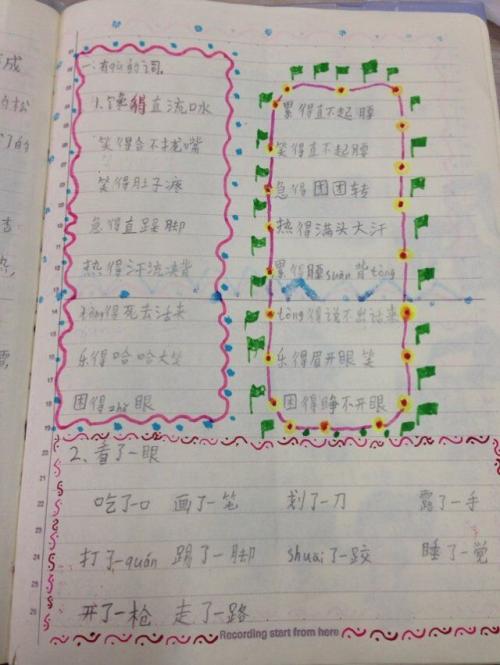 一、有qù的词。
1、馋得直流口水
笑得合不拢嘴
笑得肚子疼
急得直跺脚
热得汗流浃背
tòng得死去活来
乐得哈哈大笑
困得 眼
累得直不起腰
笑得直不起腰
急得团团转
热得满头大汗
累得腰suān背tòng
tòng得说不出话来
乐得眉开眼笑
困得睁不开眼
2、看了一眼
吃了一口 画了一笔 划了一刀 露了一手
打了一quán 踢了一脚 shuāi了一跤 睡了一觉
开了一枪 走了一路
Recording start from here